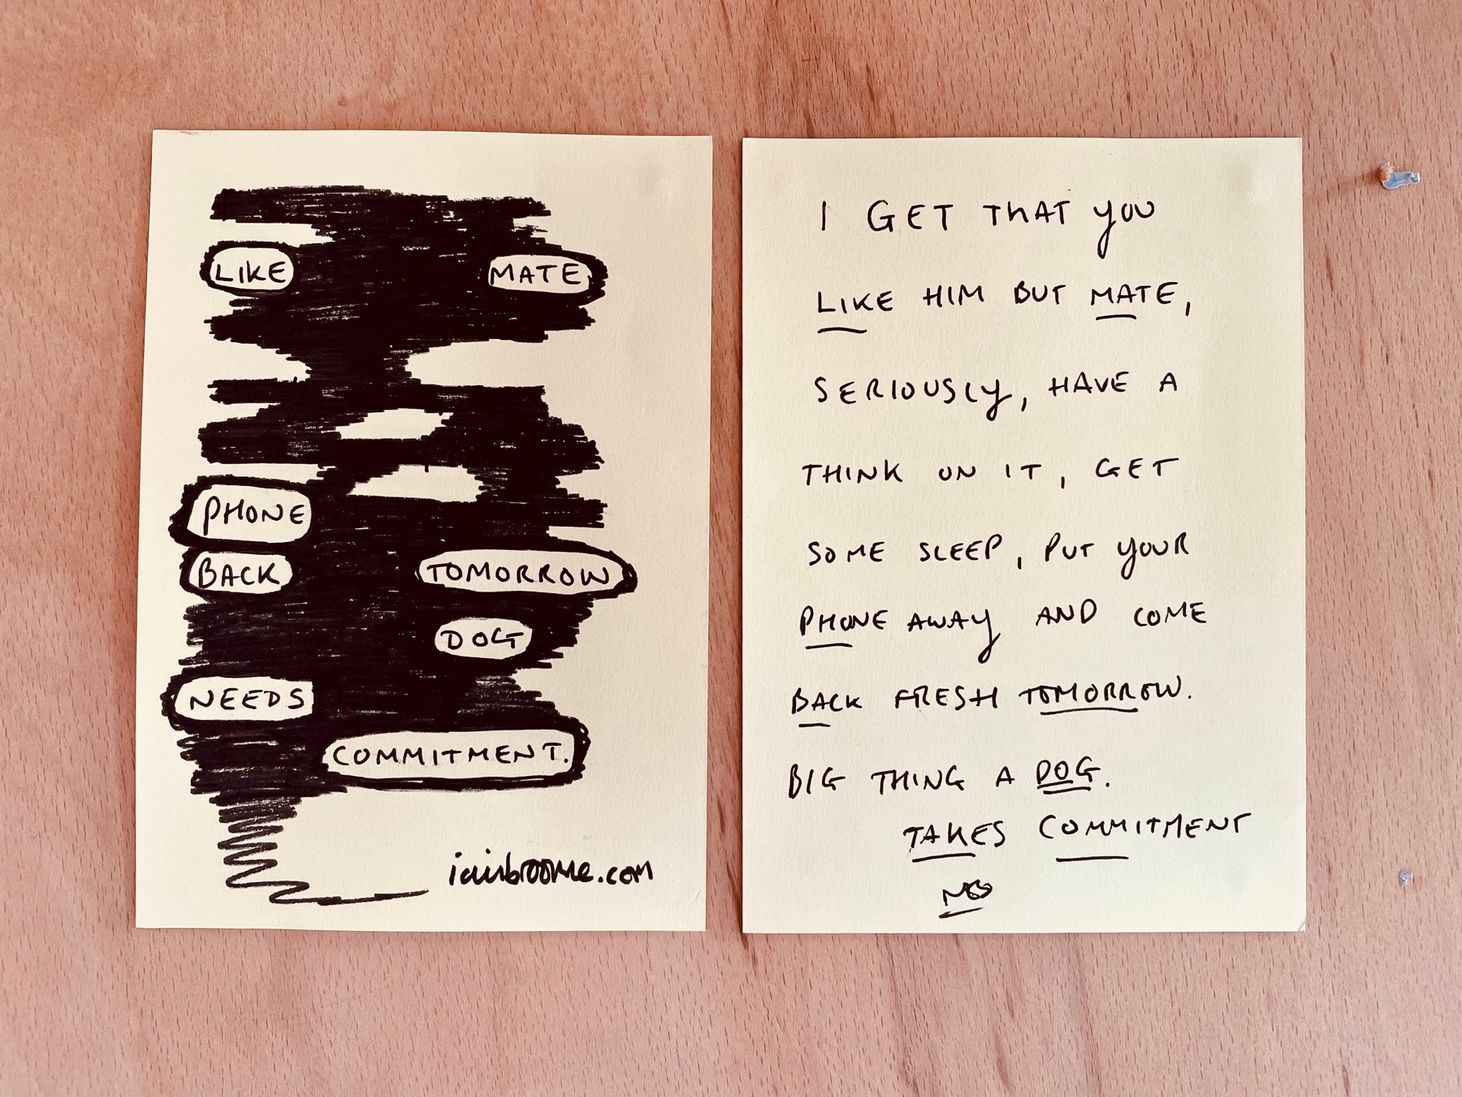 LIKE MATE
PHONE
BACK TOMORROW
DOG
NEEDS
COMMITMENT.
iainbroome.com
I GET THAT YOU
LIKE HIM BUT MATE,
SERIOUSLY, HAVE A
THINK ON IT, GET
SOME SLEEP, PUT YOUR
PHONE AWAY AND COME
BACK FRESH TOMORROW.
BIG THING A DOG.
TAKES COMMITMENT